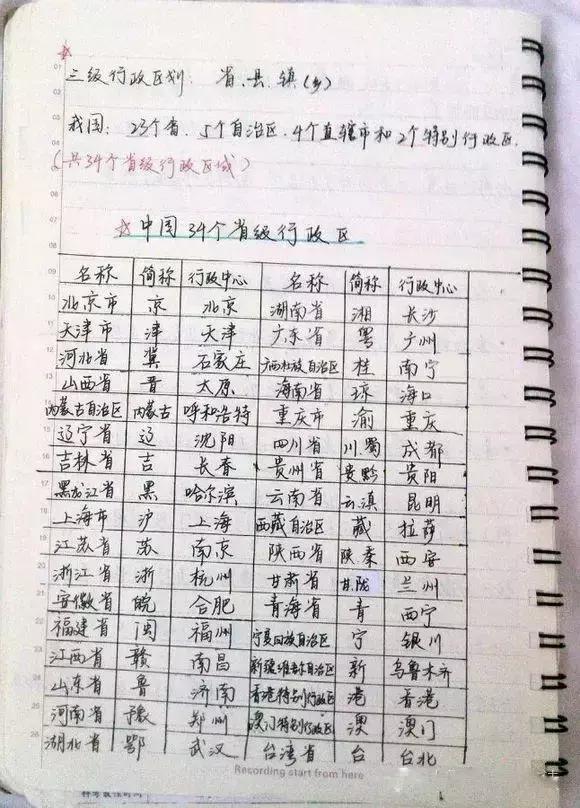 三级行政区划: 省.县.镇(乡)
我国: 23个省、5个自治区、4个直辖市和2个特别行政区.
(共34个省级行政区域)
☆中国34个省级行政区
名称 简称 行政中心 名称 简称 行政中心
北京市 京 北京 湖南省 湘 长沙
天津市 津 天津 广东省 粤 广州
河北省 冀 石家庄 广西壮族自治区 桂 南宁
山西省 晋 太原 海南省 琼 海口
内蒙古自治区 内蒙古 呼和浩特 重庆市 渝 重庆
辽宁省 辽 沈阳 四川省 川.蜀 成都
吉林省 吉 长春 贵州省 贵.黔 贵阳
黑龙江省 黑 哈尔滨 云南省 云.滇 昆明
上海市 沪 上海 西藏自治区 藏 拉萨
江苏省 苏 南京 陕西省 陕.秦 西安
浙江省 浙 杭州 甘肃省 甘.陇 兰州
安徽省 皖 合肥 青海省 青 西宁
福建省 闽 福州 宁夏回族自治区 宁 银川
江西省 赣 南昌 新疆维吾尔自治区 新 乌鲁木齐
山东省 鲁 济南 香港特别行政区 港 香港
河南省 豫 郑州 澳门特别行政区 澳 澳门
湖北省 鄂 武汉 台湾省 台 台北
Recording start from here